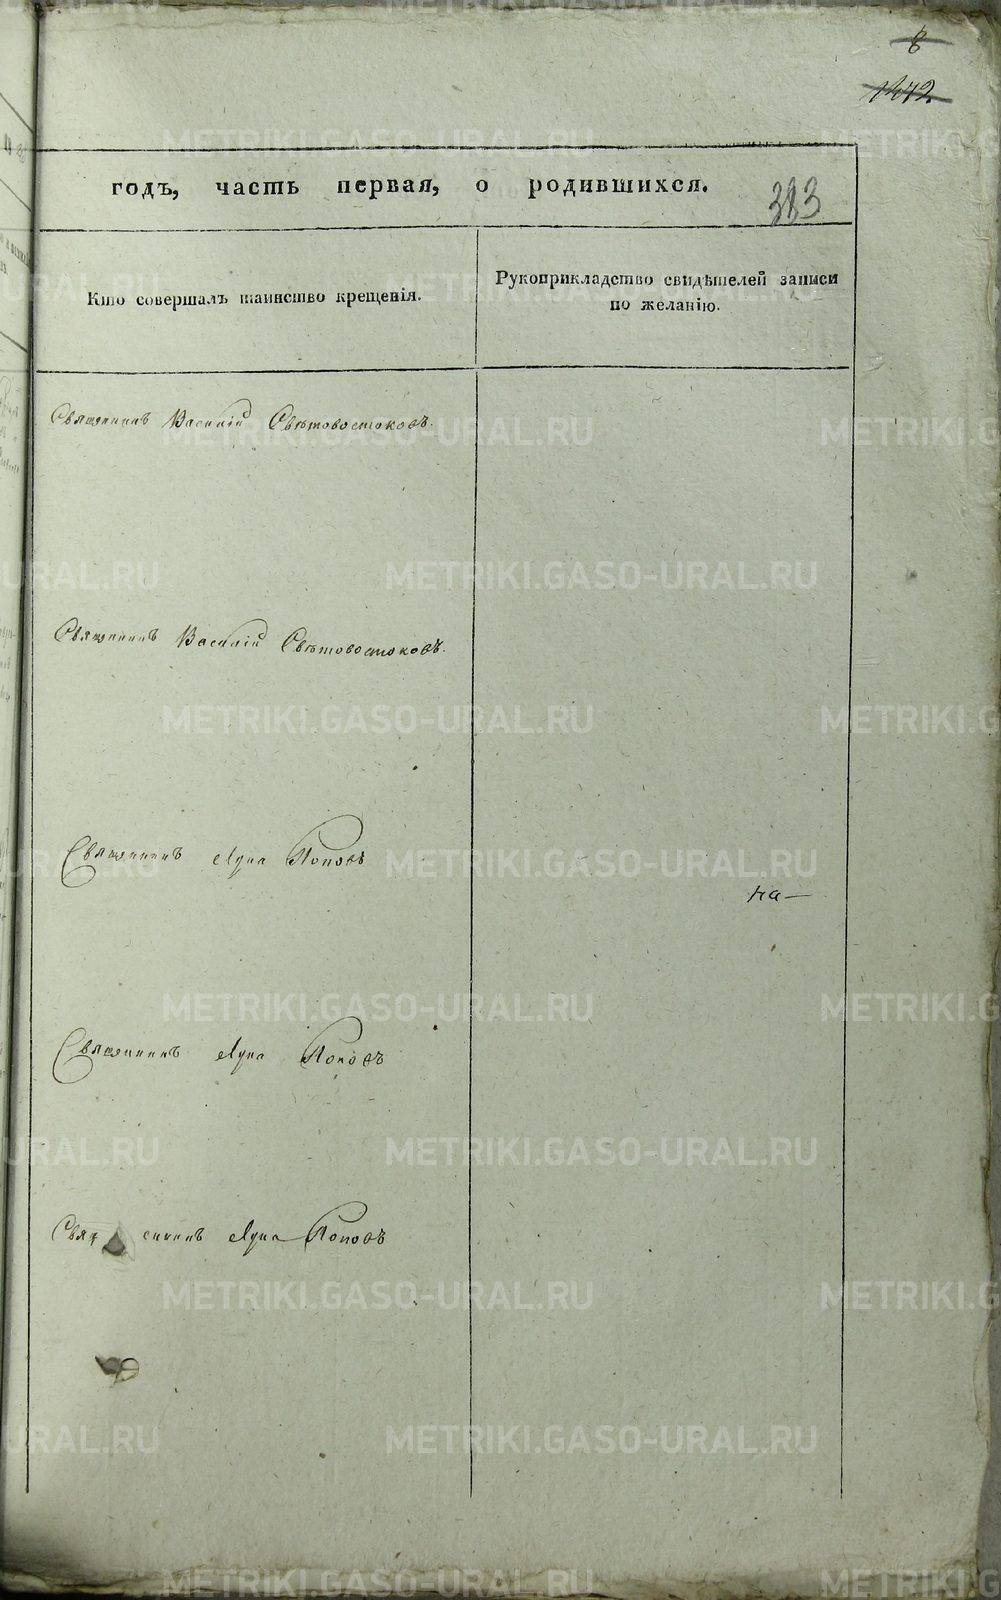 8
1472
годъ, часть первая, о родившихся.
383
Кто совершалъ таинство крещенія.
Рукоприкладство свидѣтелей записи
по желанію.
Священникъ Василій Свѣтовостоковъ.
Священникъ Василій Свѣтовостоковъ.
Священникъ Лука Поповъ
на—
Священникъ Лука Поповъ
Священникъ Лука Поповъ
METRIKI.GASO-URAL.RU